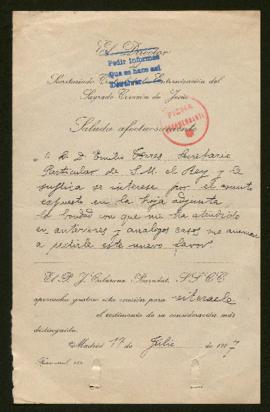 El Director
Pedir informes
Que se hace así
Devolver
Secretariado de Entronización del
Sagrado Corazón de Jesús
Saluda afectuosamente
a D. Emilio Torres, Secretario
Particular de S. M. el Rey y le
suplica se interese por el asunto
expuesto en la hoja adjunta
la bondad con que me ha atendido
en anteriores y analogos casos me
a pedirle este nuevo favor
El P. J. SS. CC.
aprovecha gustoso esta ocasión para reiterarle
el testimonio de su consideración más
distinguida.
Madrid 17 de Julio de 19 7